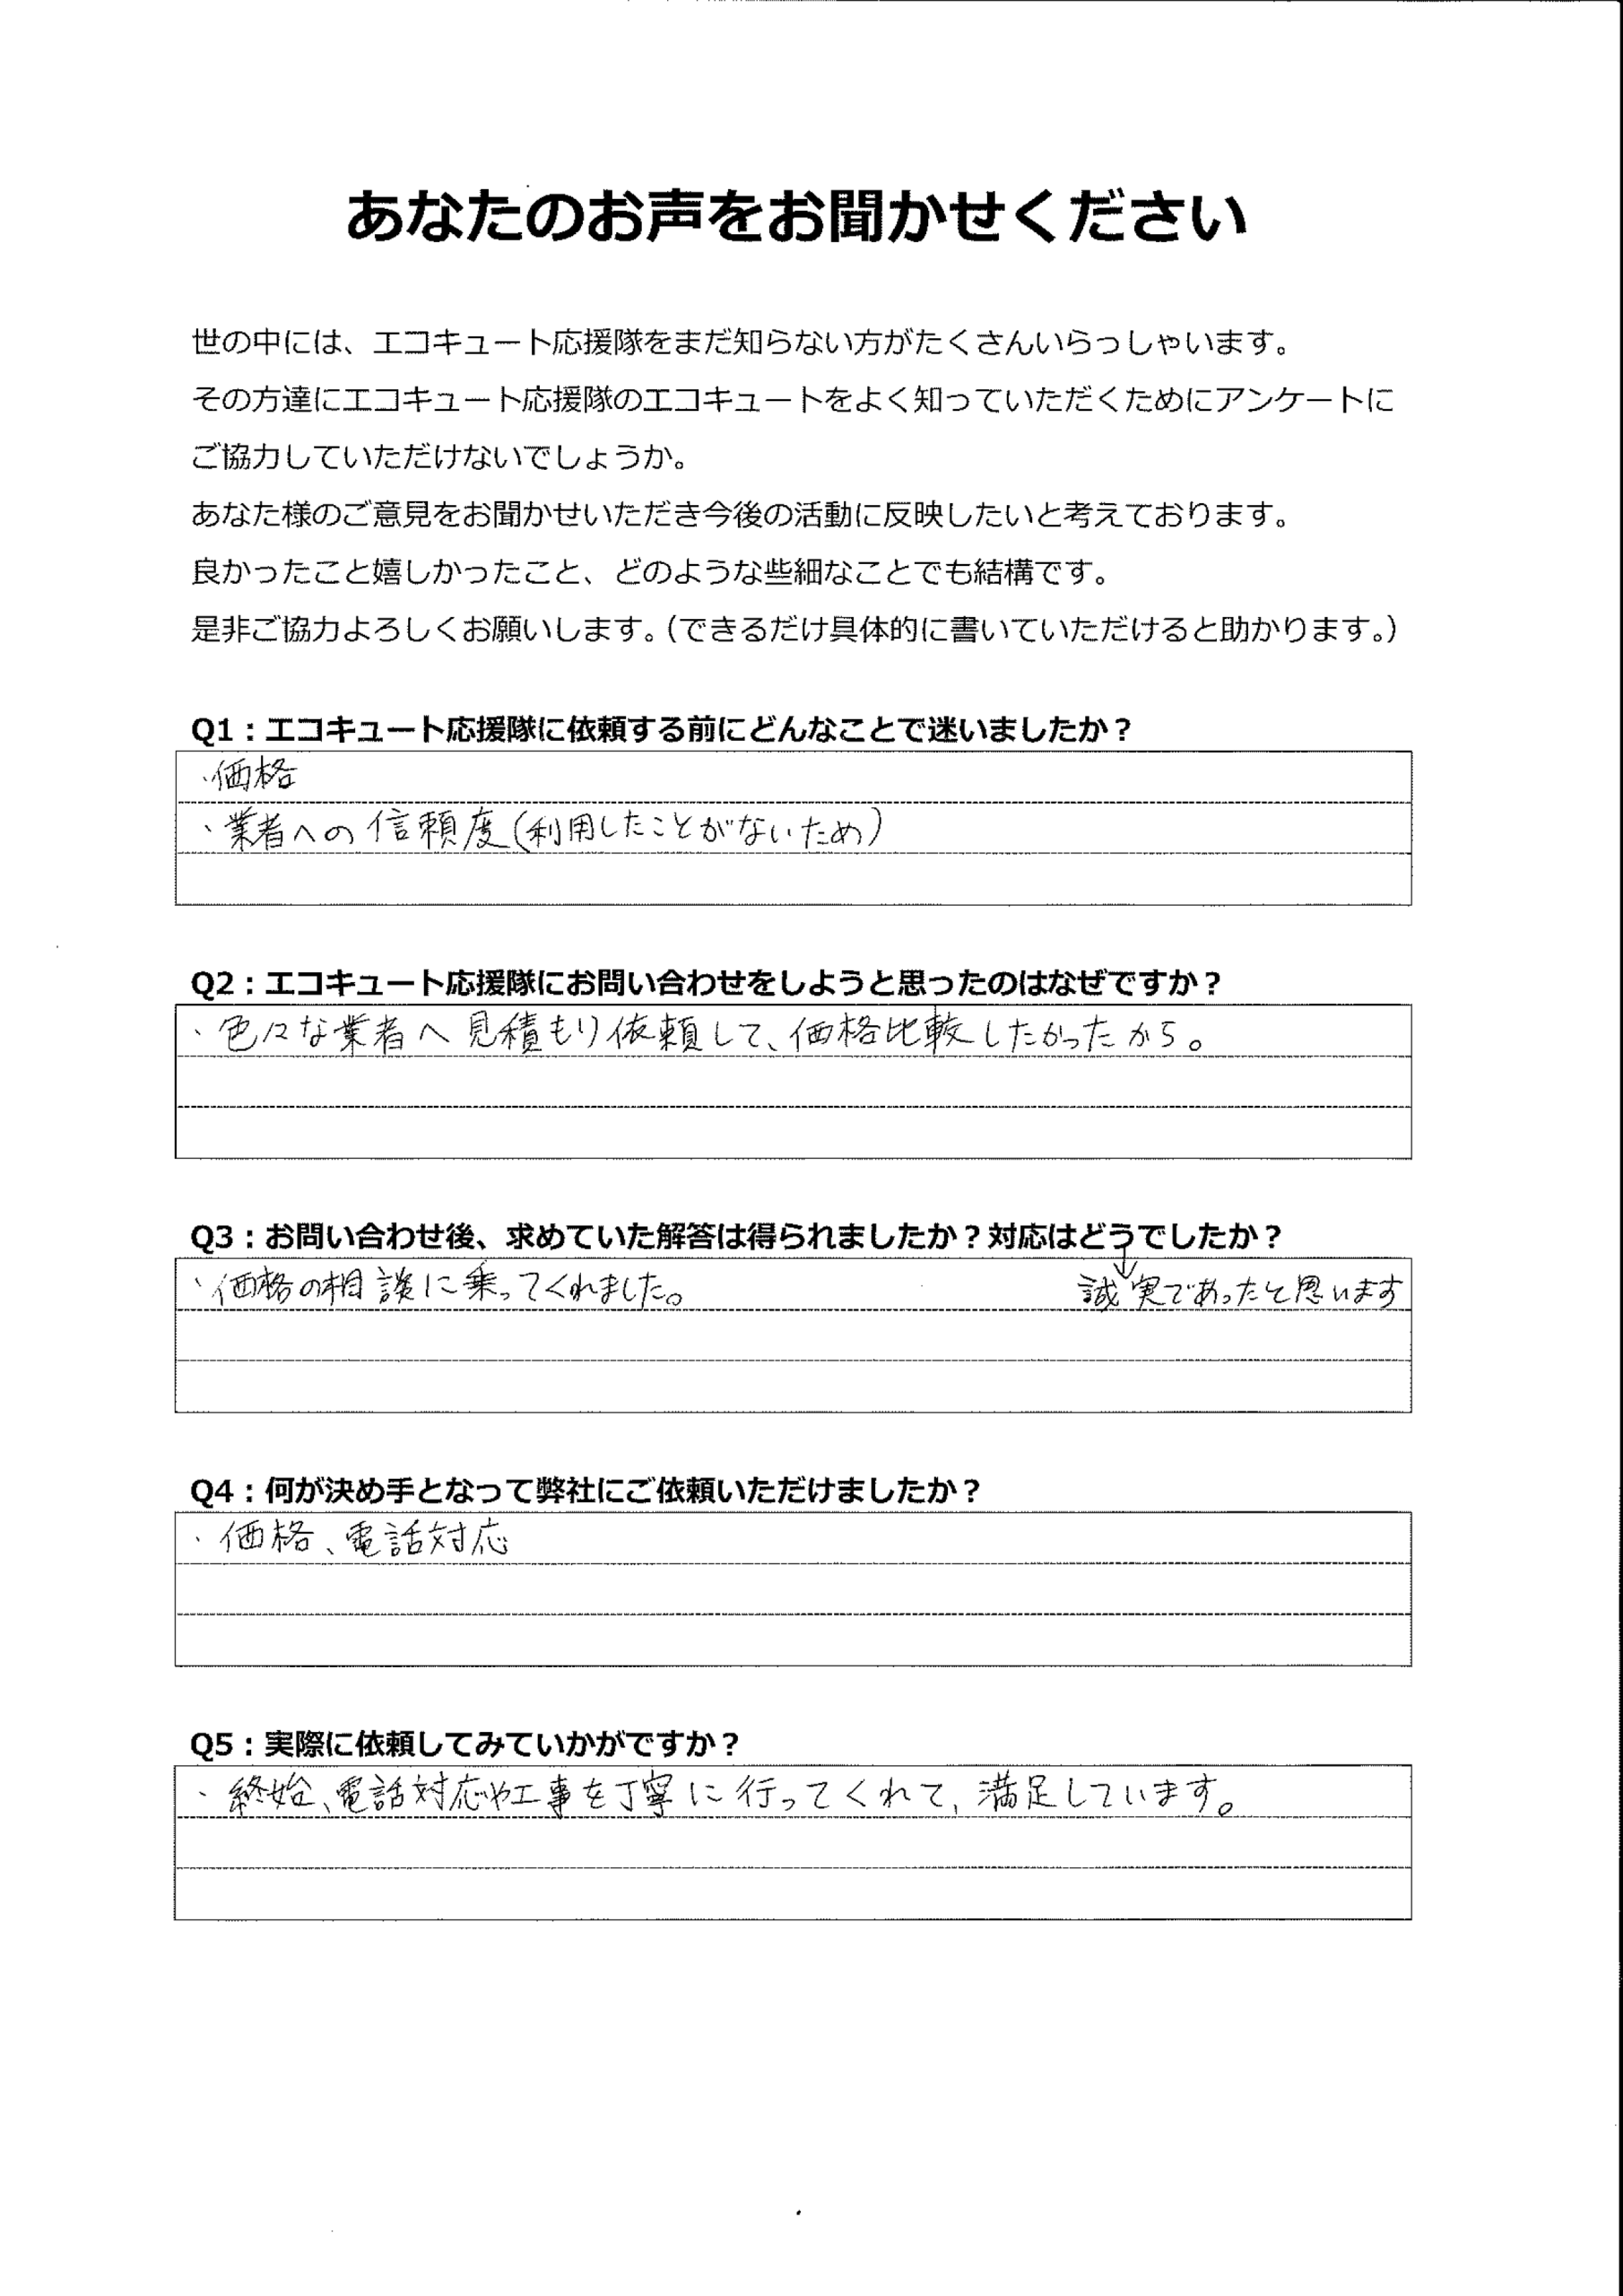 あなたのお声をお聞かせください
世の中には、エコキュート応援隊をまだ知らない方がたくさんいらっしゃいます。
その方達にエコキュート応援隊のエコキュートをよく知っていただくためにアンケートに
ご協力していただけないでしょうか。
あなた様のご意見をお聞かせいただき今後の活動に反映したいと考えております。
良かったこと嬉しかったこと、どのような些細なことでも結構です。
是非ご協力よろしくお願いします。(できるだけ具体的に書いていただけると助かります。)
Q1：エコキュート応援隊に依頼する前にどんなことで迷いましたか？
・価格
・業者への信頼度(利用したことがないため)
Q2：エコキュート応援隊にお問い合わせをしようと思ったのはなぜですか？
・色々な業者へ見積もり依頼して、価格比較したかったから。
Q3：お問い合わせ後、求めていた解答は得られましたか？対応はどうでしたか？
・価格の相談に乗ってくれました。 ↓誠実であったと思います
Q4：何が決め手となって弊社にご依頼いただけましたか？
・価格、電話対応
Q5：実際に依頼してみていかがですか？
・終始、電話対応や工事を丁寧に行ってくれて、満足しています。